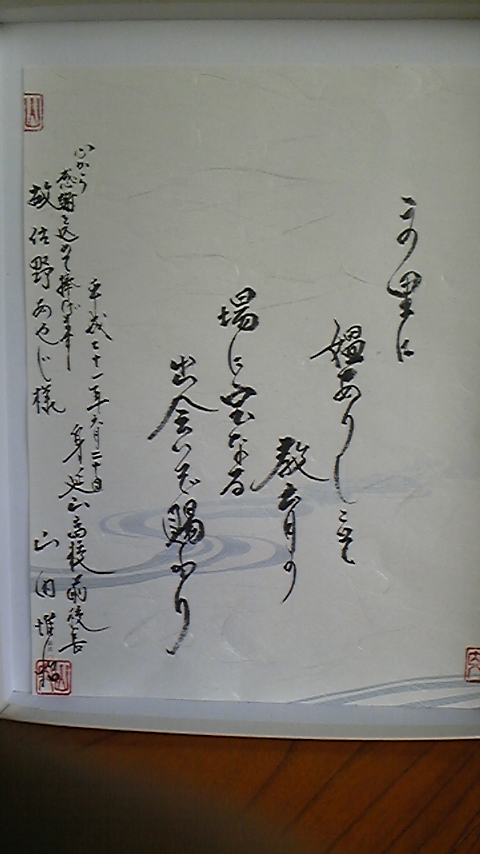 この里に
媼ありしこそ
教育の
場に宝なる
出会いを賜わり
平成二十一年六月二十日
身延山高校前校長
山田
心から
感謝を込めて捧げます
故佐野あやじ様